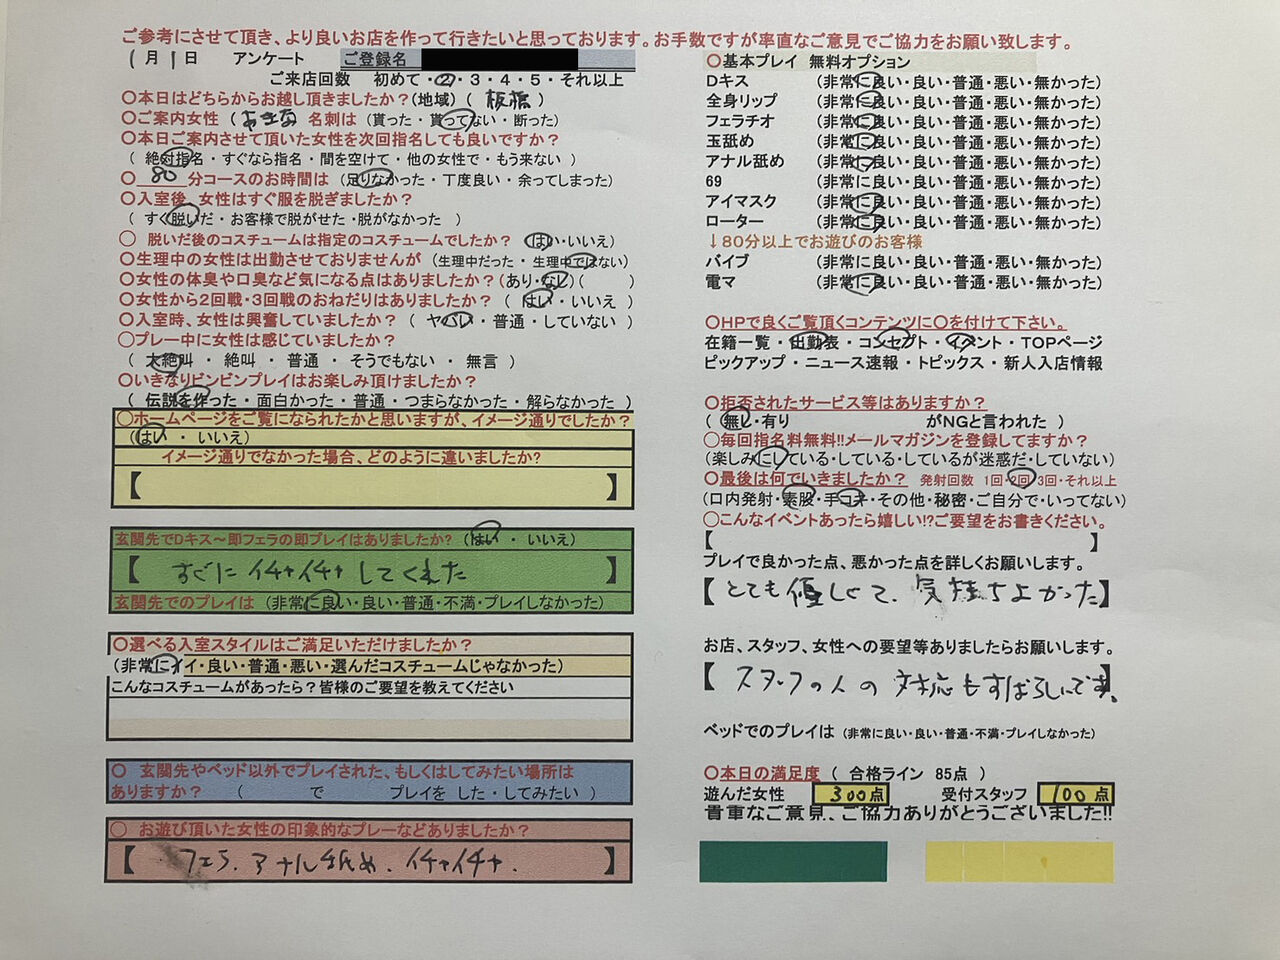 ご参考にさせて頂き、より良いお店を作って行きたいと思っております。お手数ですが率直なご意見でご協力をお願い致します。
1月1日 アンケート ご登録名
ご来店回数 初めて・②・3・4・5・それ以上
〇本日はどちらからお越し頂きましたか？(地域) ( 板橋 )
〇ご案内女性 ( あきな 名刺は (貰った・貰ってない・断った)
〇本日ご案内させて頂いた女性を次回指名しても良いですか？
( 絶対指名・すぐなら指名・間を空けて・他の女性で・もう来ない )
〇 80 分コースのお時間は (足りなかった・丁度良い・余ってしまった)
〇入室後、女性はすぐ服を脱ぎましたか？
( すぐ脱いだ・お客様で脱がせた・脱がなかった )
〇 脱いだ後のコスチュームは指定のコスチュームでしたか？ (はい・いいえ)
〇生理中の女性は出勤させておりませんが (生理中だった・生理中ではない)
〇女性の体臭や口臭など気になる点はありますか？(あり・なし)( )
〇女性から2回戦・3回戦のおねだりはありましたか？ ( はい・いいえ )
〇入室時、女性は興奮していましたか？ ( ヤバい・普通・していない )
〇プレー中に女性は感じていましたか？
( 大絶叫 ・ 絶叫 ・ 普通 ・ そうでもない ・ 無言 )
〇いきなりビンビンプレイはお楽しみ頂けましたか？
( 伝説を作った・面白かった・普通・つまらなかった・解らなかった )
〇ホームページをご覧になられたかと思いますが、イメージ通りでしたか？
(はい ・ いいえ)
イメージ通りでなかった場合、どのように違いましたか?
【 】
玄関先でDキス～即フェラの即プレイはありましたか? (はい ・ いいえ)
【 すぐに イチャイチャ してくれた 】
玄関先でのプレイは (非常に良い・良い・普通・不満・プレイしなかった)
〇選べる入室スタイルはご満足いただけましたか？
(非常にイイ・良い・普通・悪い・選んだコスチュームじゃなかった)
こんなコスチュームがあったら？皆様のご要望を教えてください
〇 玄関先やベッド以外でプレイされた、もしくはしてみたい場所は
ありますか？ ( で プレイを した・してみたい )
〇 お遊び頂いた女性の印象的なプレーなどありましたか？
【 フェラ、アナル舐め、イチャイチャ. 】
〇基本プレイ 無料オプション
Dキス (非常に良い・良い・普通・悪い・無かった)
全身リップ (非常に良い・良い・普通・悪い・無かった)
フェラチオ (非常に良い・良い・普通・悪い・無かった)
玉舐め (非常に良い・良い・普通・悪い・無かった)
アナル舐め (非常に良い・良い・普通・悪い・無かった)
69 (非常に良い・良い・普通・悪い・無かった)
アイマスク (非常に良い・良い・普通・悪い・無かった)
ローター (非常に良い・良い・普通・悪い・無かった)
↓80分以上でお遊びのお客様
バイブ (非常に良い・良い・普通・悪い・無かった)
電マ (非常に良い・良い・普通・悪い・無かった)
〇HPで良くご覧頂くコンテンツに〇を付けて下さい。
在籍一覧・出勤表・コンセプト・イベント・TOPページ
ピックアップ・ニュース速報・トピックス・新人入店情報
〇拒否されたサービス等はありますか？
( 無し・有り がNGと言われた )
〇毎回指名料無料!!メールマガジンを登録してますか？
(楽しみにしている・している・しているが迷惑だ・していない)
〇最後は何でいきましたか？ 発射回数 1回・2回・3回・それ以上
(口内発射・素股・手コキ・その他・秘密・ご自分で・いってない)
〇こんなイベントあったら嬉しい!?ご要望をお書きください。
【 】
プレイで良かった点、悪かった点を詳しくお願いします。
【 とても優しくて、気持ちよかった】
お店、スタッフ、女性への要望等ありましたらお願いします。
【 スタッフの人の 対応もすばらしいです、
ベッドでのプレイは (非常に良い・良い・普通・不満・プレイしなかった)
〇本日の満足度 ( 合格ライン 85点 )
遊んだ女性 300点 受付スタッフ 100点
貴重なご意見、ご協力ありがとうございました!!